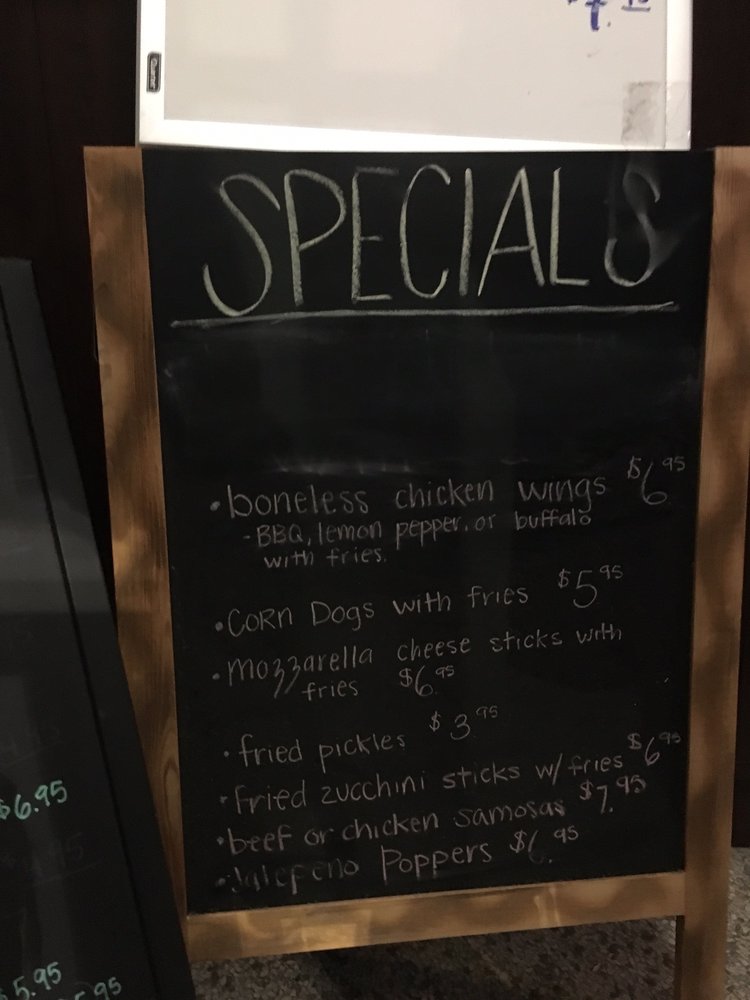 SPECIALS
• boneless chicken wings $6.95
- BBQ, lemon pepper, or buffalo
with fries.
• CORN Dogs with fries $5.95
• mozzarella cheese sticks with
fries $6.95
• fried pickles $3.95
• fried zucchini sticks w/ fries $6.95
• beef or chicken samosas $7.95
• Jalepeno Poppers $6.95
$6.95
5.95
.95